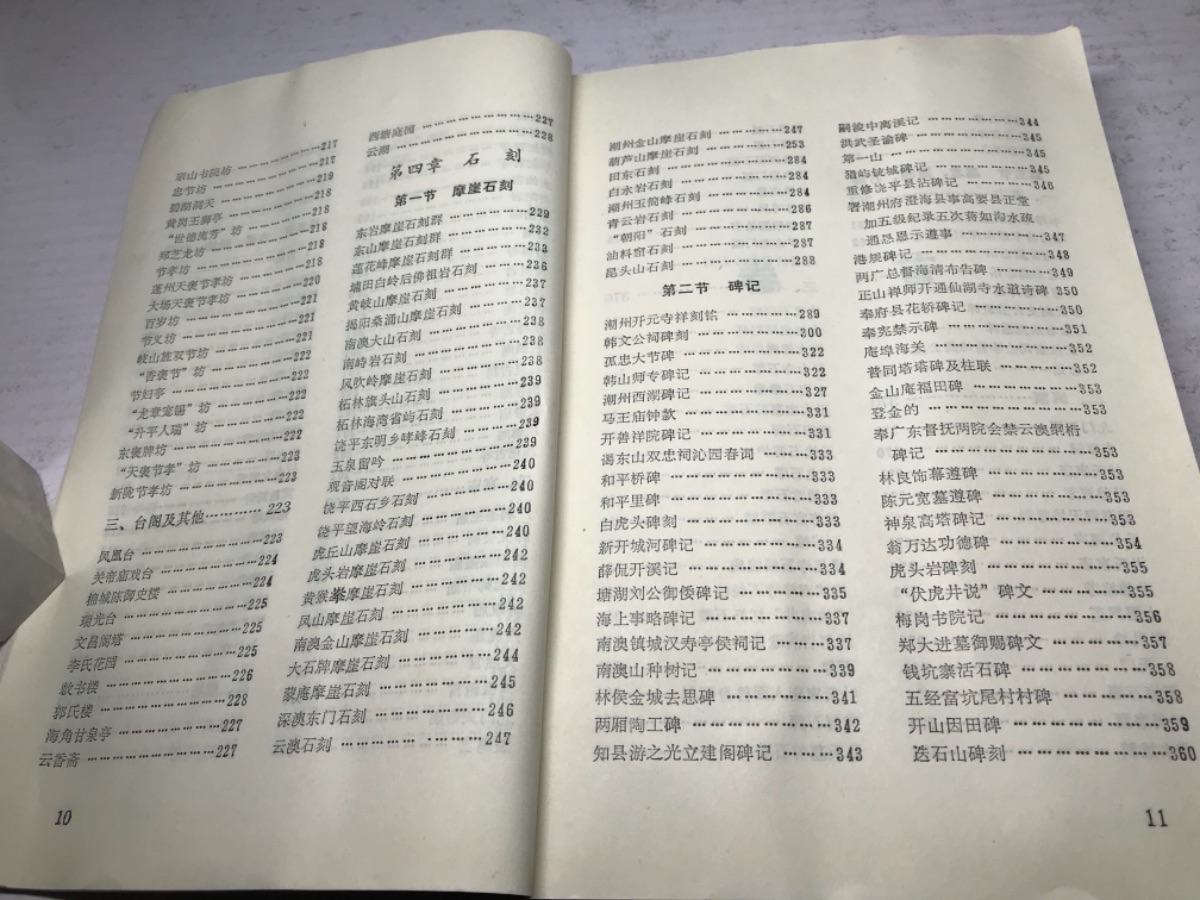 宗山书院坊 ………………217
忠节坊 ………………217
碧湖洞天 ………………219
黄岗王狮亭 ………………218
“世德流芳”坊 ………………218
郑芝龙坊 ………………218
节孝坊 ………………218
蓬州天褒节孝坊 ………………218
大场天褒节孝坊 ………………220
百岁坊 ………………221
节义坊 ………………221
岐山旌双节坊 ………………221
“香褒节”坊 ………………222
节妇亭 ………………222
“龙章宠锡”坊 ………………222
“升平人瑞”坊 ………………222
东褒牌坊 ………………222
“天褒节孝”坊 ………………223
新陇节孝坊 ………………223
三、台阁及其他…………223
凤凰台 ………………223
关帝庙戏台 ………………224
棉城陈御史楼 ………………224
瑞光台 ………………225
文昌阁塔 ………………225
李氏花园 ………………225
驮书楼 ………………226
郭氏楼 ………………228
海角甘泉亭 ………………227
云香斋 ………………227
西塘庭园 ………………227
云湖 ………………228
第四章 石 刻
第一节 摩崖石刻
东岩摩崖石刻群 ………………229
东山摩崖石刻群 ………………232
莲花峰摩崖石刻群 ………………233
埔田白岭后佛祖岩石刻 …………236
黄岐山摩崖石刻 ………………237
揭阳桑涌山摩崖石刻 …………237
南澳大山石刻 ………………238
南峙岩石刻 ………………238
风吹岭摩崖石刻 ………………238
柘林旗头山石刻 ………………239
柘林海湾省屿石刻 …………239
饶平东明乡哮峰石刻 …………239
玉泉留吟 ………………239
观音阁对联 ………………240
饶平西石乡石刻 ………………240
饶平望海岭石刻 ………………240
虎丘山摩崖石刻 ………………240
虎头岩摩崖石刻 ………………242
黄猴峯摩崖石刻 ………………242
凤山摩崖石刻 ………………242
南澳金山摩崖石刻 …………242
大石牌摩崖石刻 ………………244
蒙庵摩崖石刻 ………………245
深澳东门石刻 ………………246
云澳石刻 ………………247
10
潮州金山摩崖石刻 …………247
葫芦山摩崖石刻 ………………253
田东石刻 ………………284
白水岩石刻 ………………284
潮州玉简峰石刻 ………………284
青云岩石刻 ………………286
“朝阳”石刻 ………………287
油料窑石刻 ………………287
昆头山石刻 ………………288
第二节 碑记
潮州开元寺祥刻铭 …………289
韩文公祠碑刻 ………………300
孤忠大节碑 ………………322
韩山师专碑记 ………………322
潮州西湖碑记 ………………327
马王庙钟款 ………………331
开善祥院碑记 ………………331
谒东山双忠祠沁园春词 …………333
和平桥碑 ………………333
和平里碑 ………………333
白虎头碑刻 ………………333
新开城河碑记 ………………334
薛侃开溪记 ………………334
塘湖刘公御倭碑记 …………335
海上事略碑记 ………………337
南澳镇城汉寿亭侯祠记 ………337
南澳山种树记 ………………339
林侯金城去思碑 ………………341
两厢陶工碑 ………………342
知县游之光立建阁碑记 ………343
嗣浚中离溪记 ………………344
洪武圣谕碑 ………………345
第一山 ………………345
猎屿铳城碑记 ………………345
重修饶平县沾碑记 …………346
署潮州府澄海县事高要县正堂
加五级纪录五次蒋如洵水疏
通恳恩示遵事 ………………347
港规碑记 ………………348
两广总督海清布告碑 …………349
正山禅师开通仙湖寺水道诗碑 350
奉府县花轿碑记 ………………350
奉宪禁示碑 ………………351
庵埠海关 ………………352
普同塔塔碑及柱联 …………352
金山庵福田碑 ………………353
登金的 ………………353
奉广东督抚两院会禁云澳铜桁
碑记 ………………353
林良饰幕遵碑 ………………353
陈元宽墓遵碑 ………………353
神泉高塔碑记 ………………353
翁万达功德碑 ………………354
虎头岩碑刻 ………………355
“伏虎井说”碑文 …………355
梅岗书院记 ………………356
郑大进墓御赐碑文 …………357
钱坑寨活石碑 ………………358
五经富坑尾村村碑 …………358
开山因田碑 ………………359
迭石山碑刻 ………………360
11